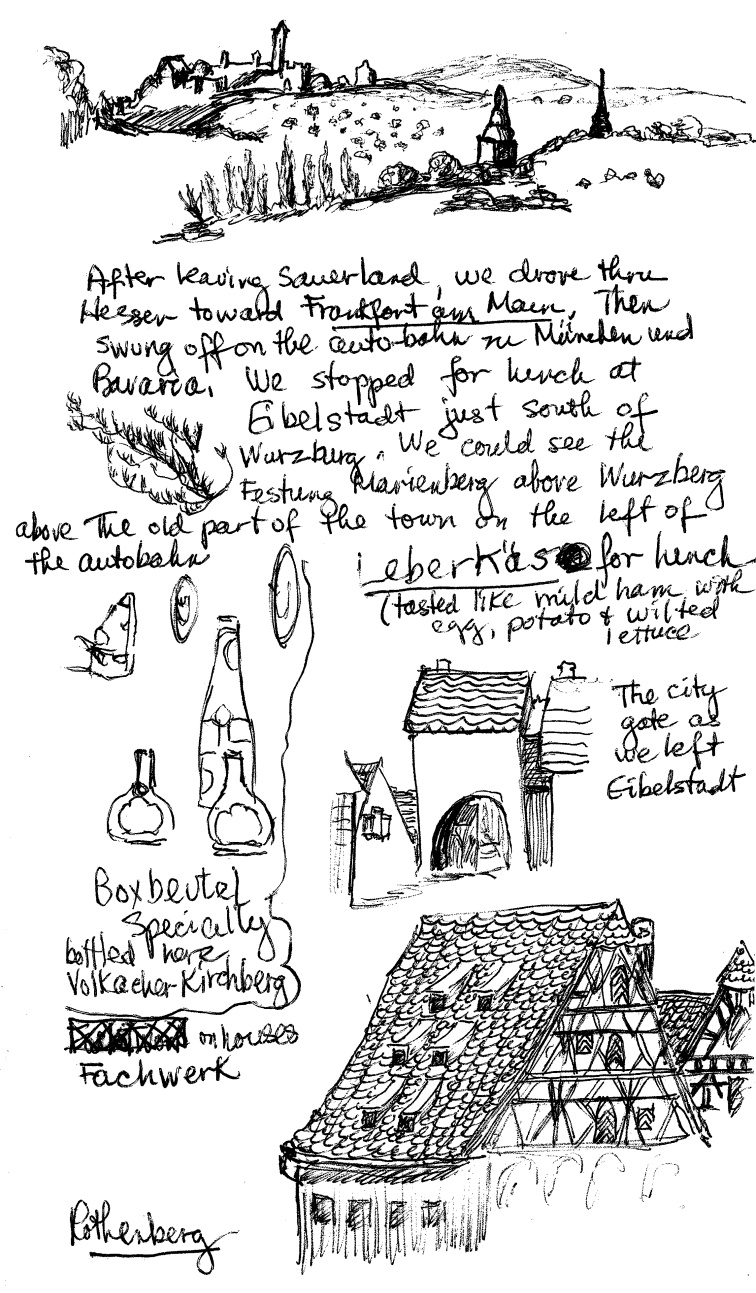 After leaving Sauerland, we drove thru
Hessen toward Frankfort am Main. Then
swung off on the auto-bahn zu München und
Bavaria. We stopped for lunch at
Eibelstadt just south of
Wurzburg. We could see the
Festung Marienberg above Wurzberg
above The old part of the town on the left of
the autobahn
Leberkäs for lunch
(tasted like mild ham with
egg, potato & wilted
lettuce
The city
gate as
we left
Eibelstadt
Boxbeutel
Specialty
bottled here
Volkacher-Kirchberg
on houses
Fachwerk
Rothenberg